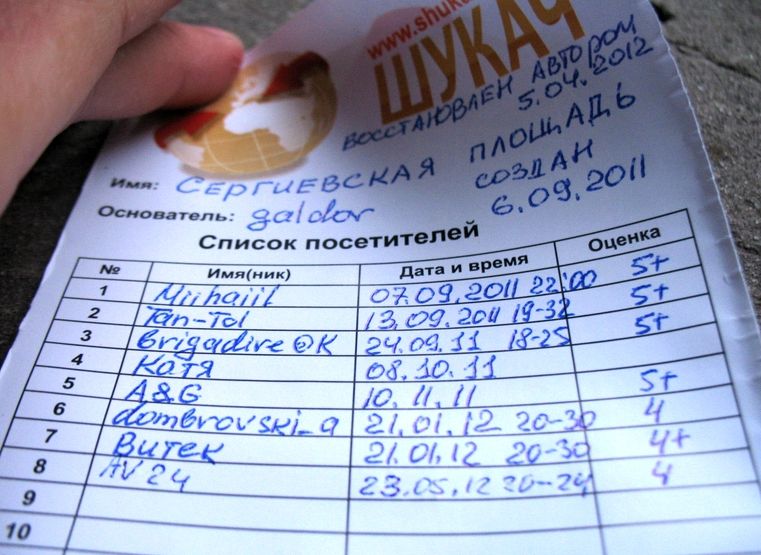 www.shuka
ШУКАЧ
ВОССТАНОВЛЕН АВТОРОМ
5.04.2012
Имя: СЕРГИЕВСКАЯ ПЛОЩАДЬ
Основатель: galdor
СОЗДАН
6.09.2011
Список посетителей
№ Имя(ник) Дата и время Оценка
1 Miihaiil 07.09.2011 22:00 5+
2 Tan-Tol 13.09.2011 19-32 5+
3 Brigadire@K 24.09.11 18-25 5+
4 Котя 08.10.11
5 A&G 10.11.11 5+
6 dombrovski_a 21.01.12 20-30 4
7 Витек 21.01.12 20-30 4+
8 AV24 23.05.12 20-24 4
9
10